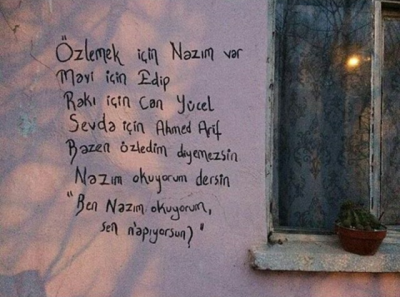 Özlemek için Nazım var
Mavi için Edip
Rakı için Can Yücel
Sevda için Ahmed Arif
Bazen özledim diyemezsin
Nazım okuyorum dersin
"Ben Nazım okuyorum,
sen n'apıyorsun?"